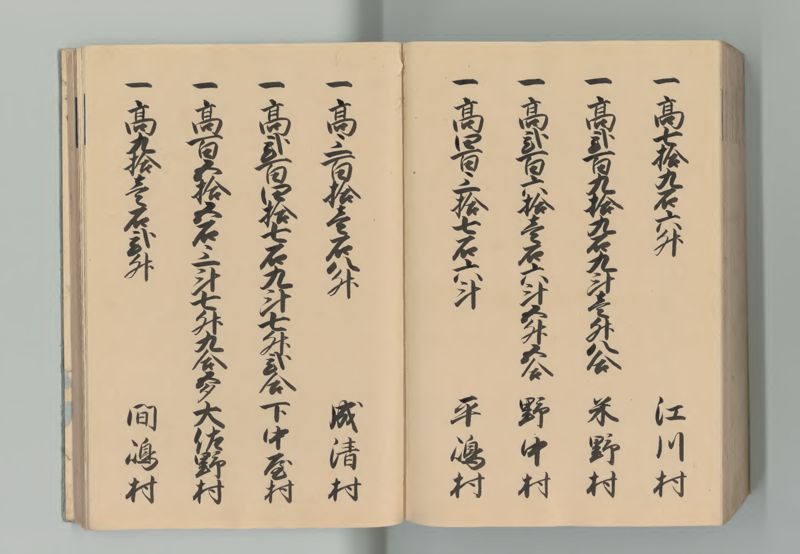 一高七拾九石六升 江川村
一高弐百九拾九石九斗壱升八合 米野村
一高弐百六拾壱石六斗五升五合 野中村
一高四百三拾七石六斗 平嶋村
一高三百拾壱石八升 成清村
一高弐百四拾七石九斗七升弐合 下中屋村
一高百五拾五石三斗七升九合五夕 大佐野村
一高九拾壱石弐升 間嶋村